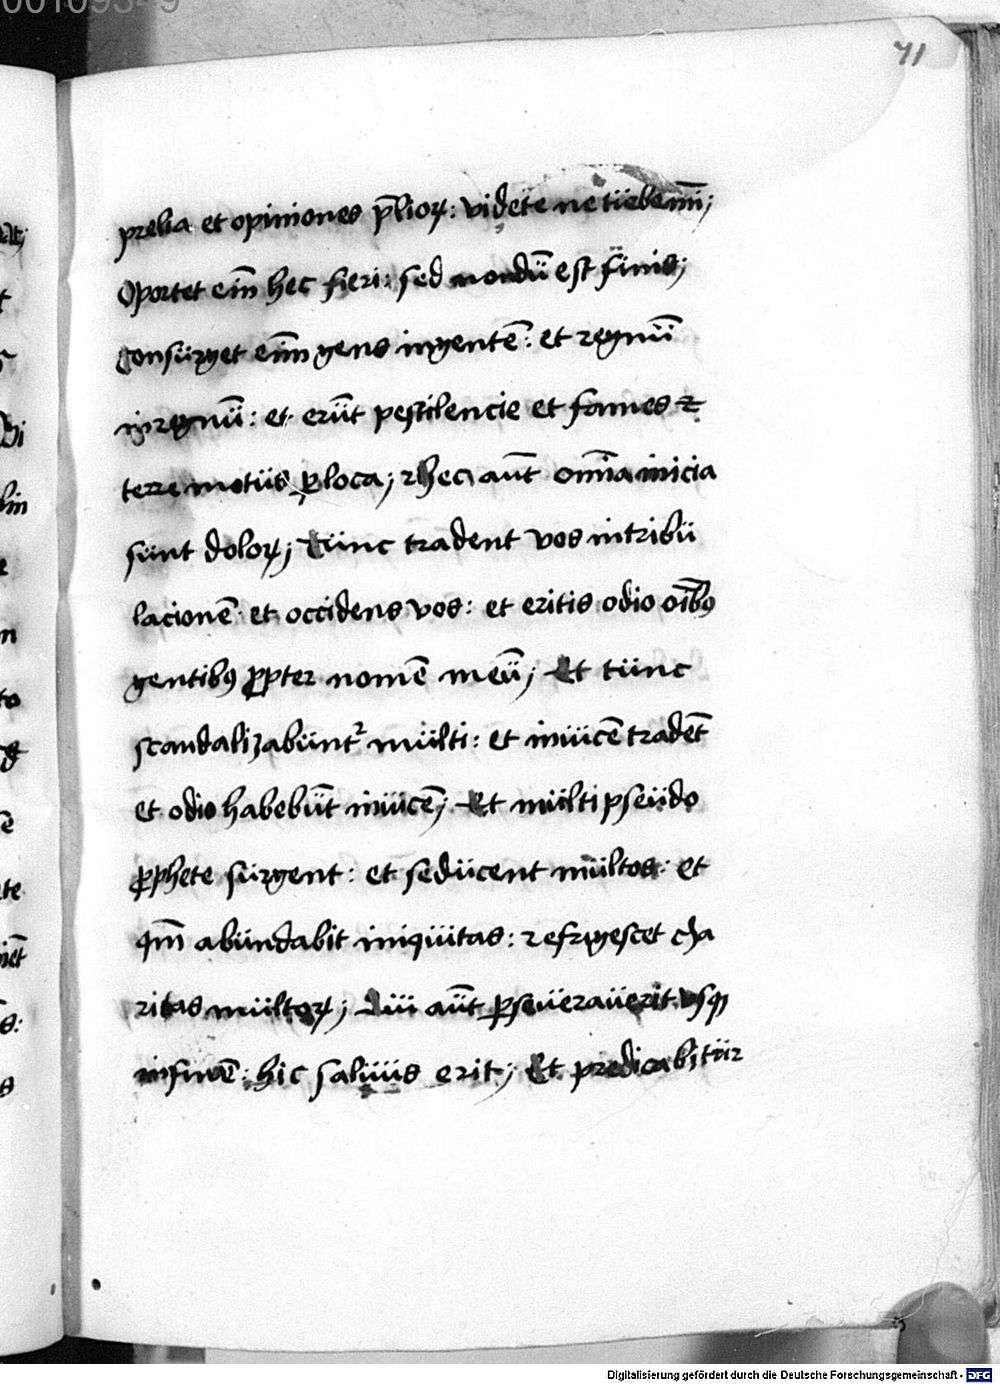 00109349
71
prelia et opiniones p̄lioꝝ: videte ne tu̇ebemi̅ni;
Oportet eni̅ hec fieri: sed nondū est finis;
Consurget eni̅m gens in gentē: et regnū
in regnū: et erūt pestilencie et fames ⁊
terre motus ꝑ loca; ⁊ hec aūt om̅ia inicia
sunt doloꝝ; Tunc tradent vos in tribu
lacionē et occidens vos: et eritis odio oi̅bꝰ
gentibꝰ ꝓpter nomē meū; Et tunc
scandalizabuntᷣ multi: et inuicē tradēt
et odio habebūt inuicē; Et multi pseudo
ꝓphete surgent: et seducent multos: et
qm̅ abundabit iniquitas: refrigescet cha
ritas multoꝝ; Qui aūt ꝑseuerauerit usqꝫ
in finē: hic saluus erit; Et predicabitur
Digitalisierung gefördert durch die Deutsche Forschungsgemeinschaft - DFG